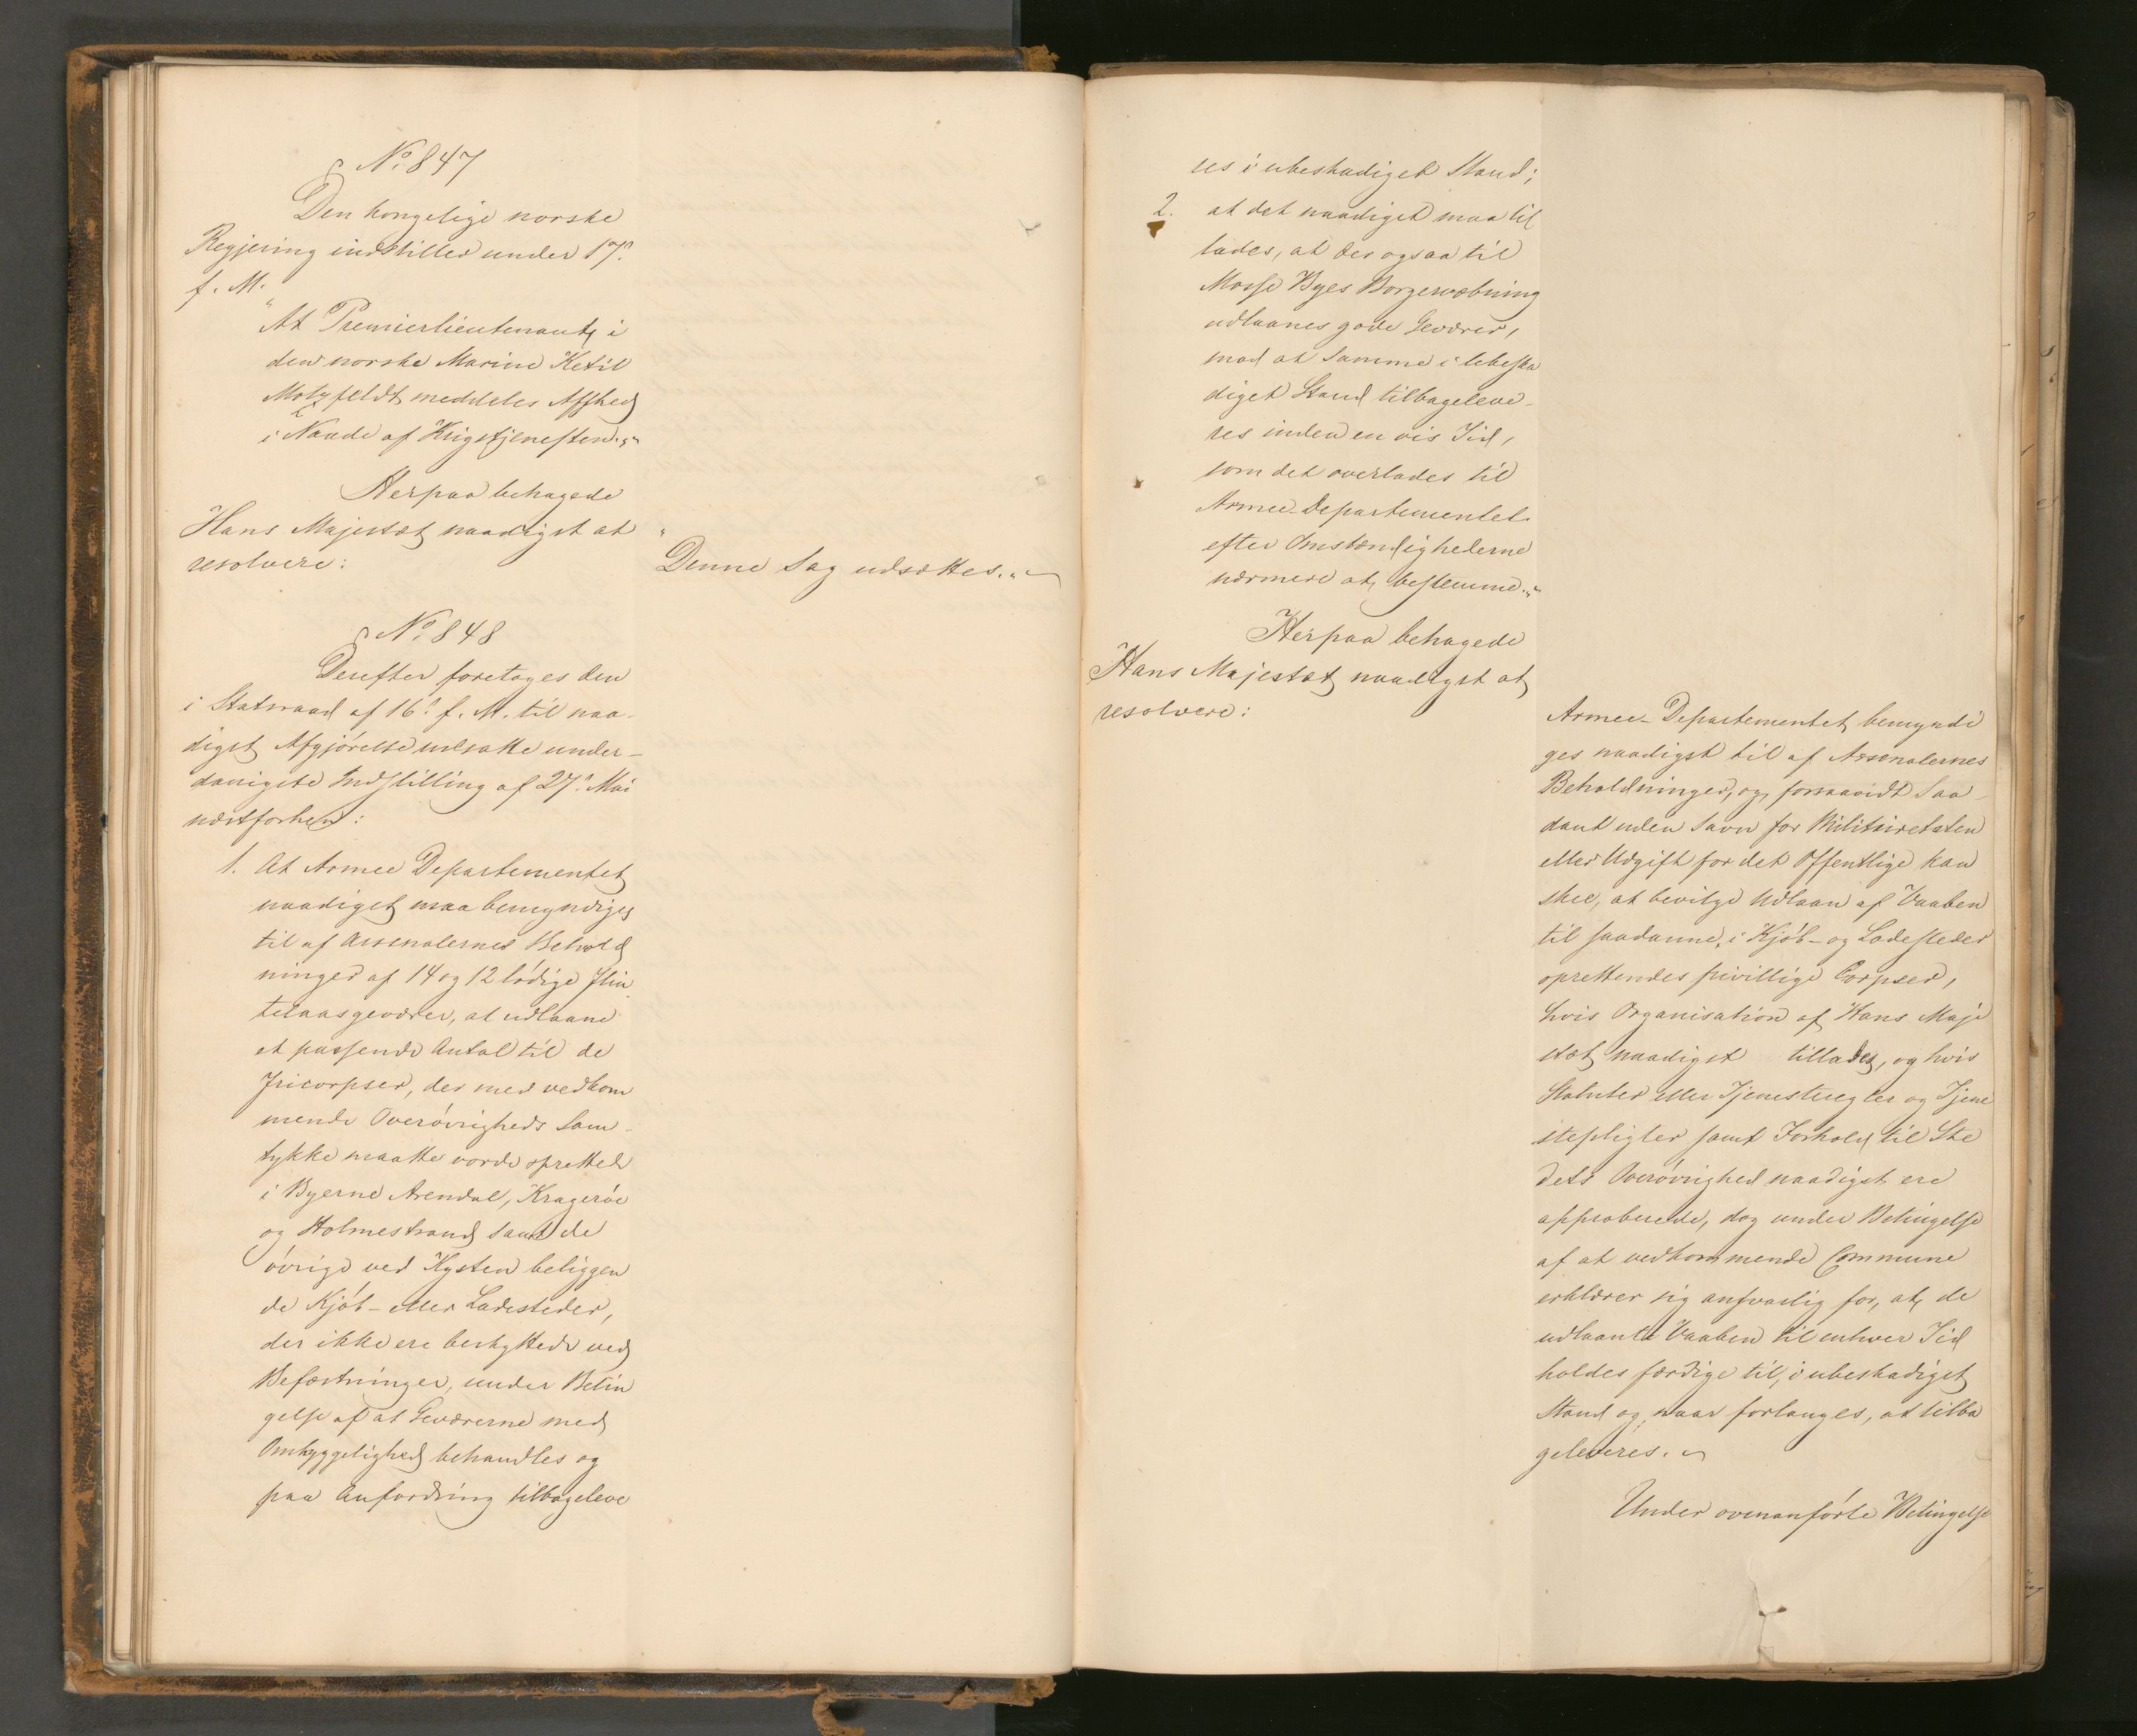 No. 847
Den kongelige norske
Regjering indstiller under 17.
f. M.
"At Premierlieutenant i
den norske Marine Ketil
Motzfeldt meddeles Afsked
i Naade af Krigstjenesten."
Herpaa behagede
Hans Majestæt naadigst at
resolvere:
"Denne Sag udsættes."
No. 848
Derefter foretoges den
i Statsraad af 16. f. M. til naa-
digst Afgjørelse udsatte under-
danigste Indstilling af 27. Mai
næstforhen:
1. At Armee Departementet
naadigst maa bemyndiges
til af Arsenalernes Behold
ninger af 14 og 12 lødige Flin
telaasgeværer, at udlaane
et passende Antal til de
Fricorpser, der med vedkom
mende Overøvrigheds Sam-
tykke maatte vorde oprettede
i Byerne Arendal, Kragerøe
og Holmestrand samt de
øvrige ved Kysten beliggen
de Kjøb- eller Ladesteder,
der ikke ere beskyttede ved
Befæstninger, under Betin
gelse af at Geværerne med
Omhyggelighed behandles og
paa Anfordring tilbageleve
res i ubeskadiget Stand;
2. at det naadigst maa til
lades, at der ogsaa til
Mosse Byes Borgervæbning
udlaanes gode Geværer,
mod at samme i ubeska
diget Stand tilbageleve-
res inden en vis Tid,
som det overlades til
Armee-Departementet
efter Omstændighederne
nærmere at bestemme."
Herpaa behagede
Hans Majestæt naadigst at
resolvere:
Armee-Departementet bemyndi
ges naadigst til af Arsenalernes
Beholdninger, og forsaavidt saa-
dant uden Savn for Militairetaten
eller Udgift for det Offentlige kan
skee, at bevilge Udlaan af Vaaben
til saadanne, i Kjøb- og Ladesteder
oprettendes frivillige Corpser,
hvis Organisation af Hans Maje
stæt naadigst tillades, og hvis
Statuter eller Tjenesteregler og Tjene
stepligter samt Forhold til Ste
dets Overøvrighed naadigst ere
approberede, dog under Betingelse
af at vedkommende Commune
erklærer sig ansvarlig for, at de
udlaante Vaaben til enhver Tid
holdes færdige til, i ubeskadiget
Stand og naar forlanges, at tilba
geleveres.
Under ovenanførte Betingelse